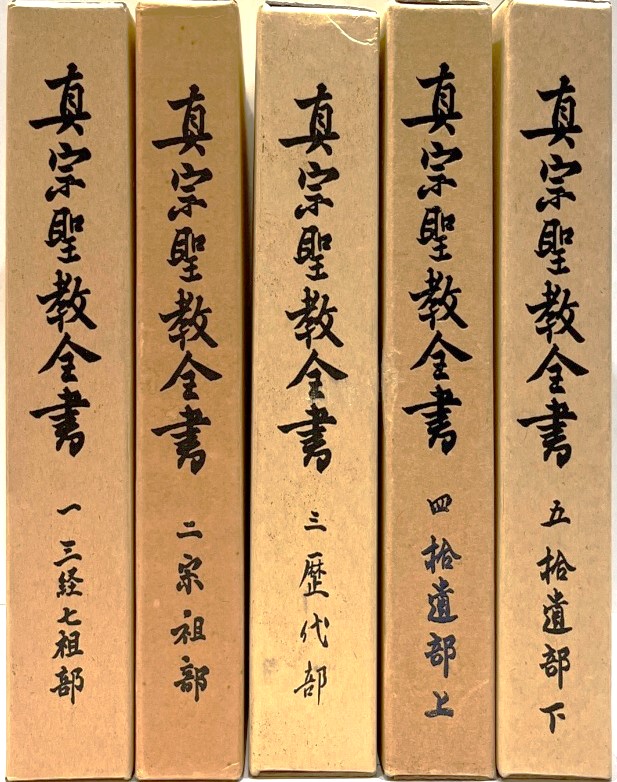 真宗聖教全書 一 三経七祖部
真宗聖教全書 二 宗祖部
真宗聖教全書 三 歴代部
真宗聖教全書 四 拾遺部 上
真宗聖教全書 五 拾遺部 下